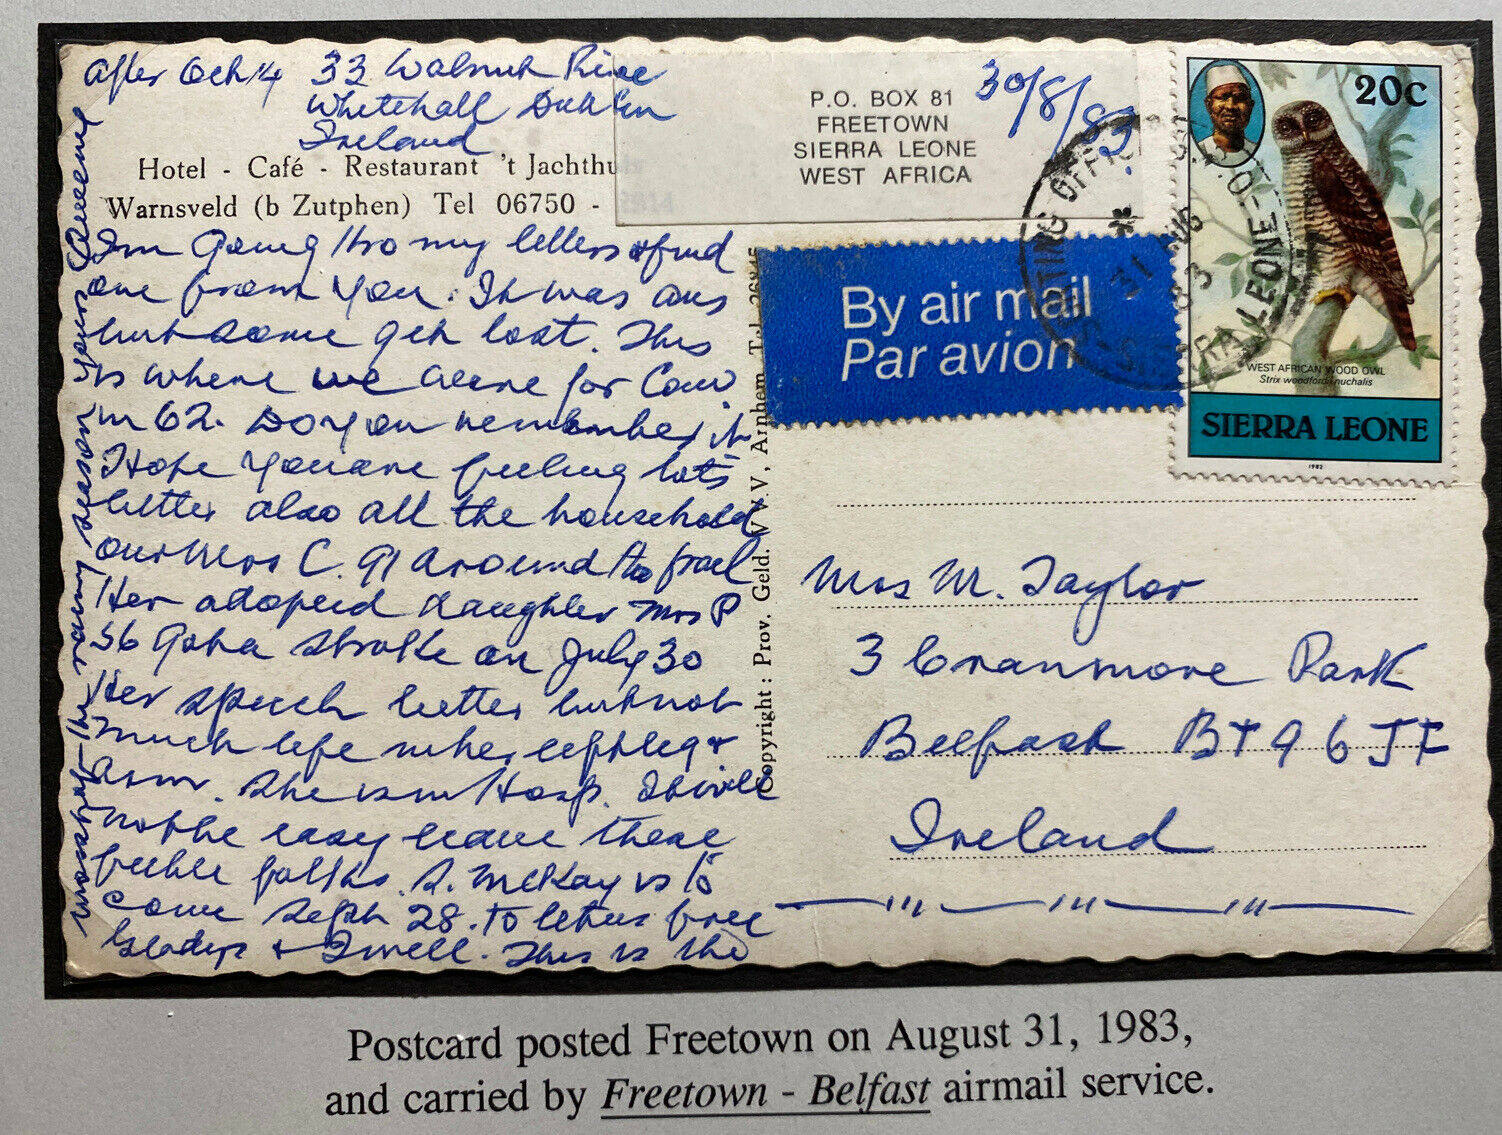 After Oct 14 33 Walnut Rise
Whitehall Dublin
Ireland
Hotel - Café - Restaurant 't Jachthu
Warnsveld (b Zutphen) Tel 06750 -
P.O. BOX 81
FREETOWN
SIERRA LEONE
WEST AFRICA
30/8/83
By air mail
Par avion
20c
WEST AFRICAN WOOD OWL
Strix woodfordi nuchalis
SIERRA LEONE
1982
31 AUG 83
SIERRA LEONE
I'm going thro my letters & find
one from you. It was ans
but some get lost. This
is where we were for Conv.
in 62. Do you remember it
Hope you are feeling lots
better also all the household
our Mrs C. 91 around tho frail
Her adopted daughter Mrs P
56 got a stroke on July 30
Her speech better but not
much life in her left leg &
arm. She is in Hosp. It will
not be easy leave these
feeble folks. S. McKay is to
come Sept 28. to let us free
Gladys & I well. This is the
worst of the rainy season yours
Mrs M. Taylor
3 Cranmore Park
Belfast BT9 6JF
Ireland
Copyright: Prov. Geld. V.V.V, Arnhem Tel.
Postcard posted Freetown on August 31, 1983,
and carried by Freetown - Belfast airmail service.